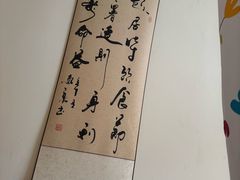 起居時飲食節
暑適則身利
壽命益